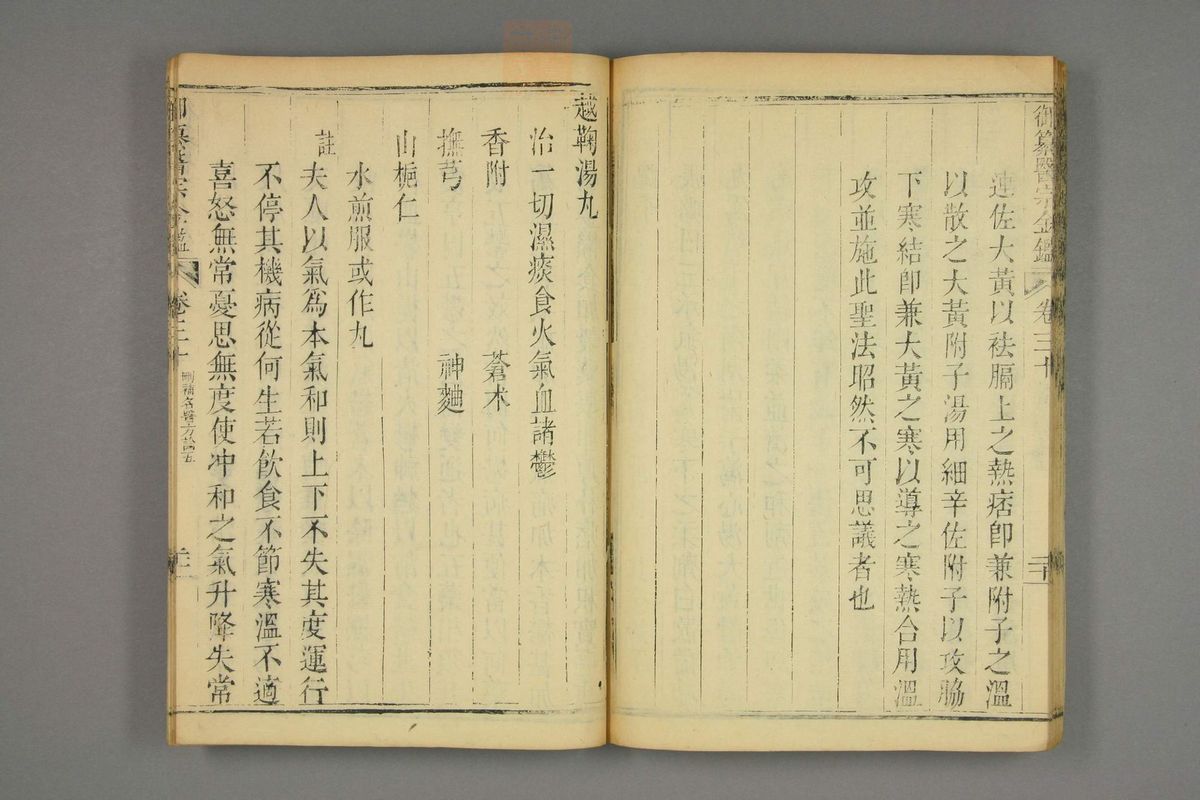 御纂醫宗金鑑 卷三十
連佐大黃以祛膈上之熱痞卽兼附子之溫
以散之大黃附子湯用細辛佐附子以攻脇
下寒結卽兼大黃之寒以導之寒熱合用溫
攻並施此聖法昭然不可思議者也
越鞠湯丸
治一切濕痰食火氣血諸鬱
香附 蒼朮
撫芎 神麯
山梔仁
水煎服或作丸
註 夫人以氣爲本氣和則上下不失其度運行
不停其機病從何生若飮食不節寒溫不適
喜怒無常憂思無度使冲和之氣升降失常
御纂醫宗金鑑 卷三十 刪補名醫方論五